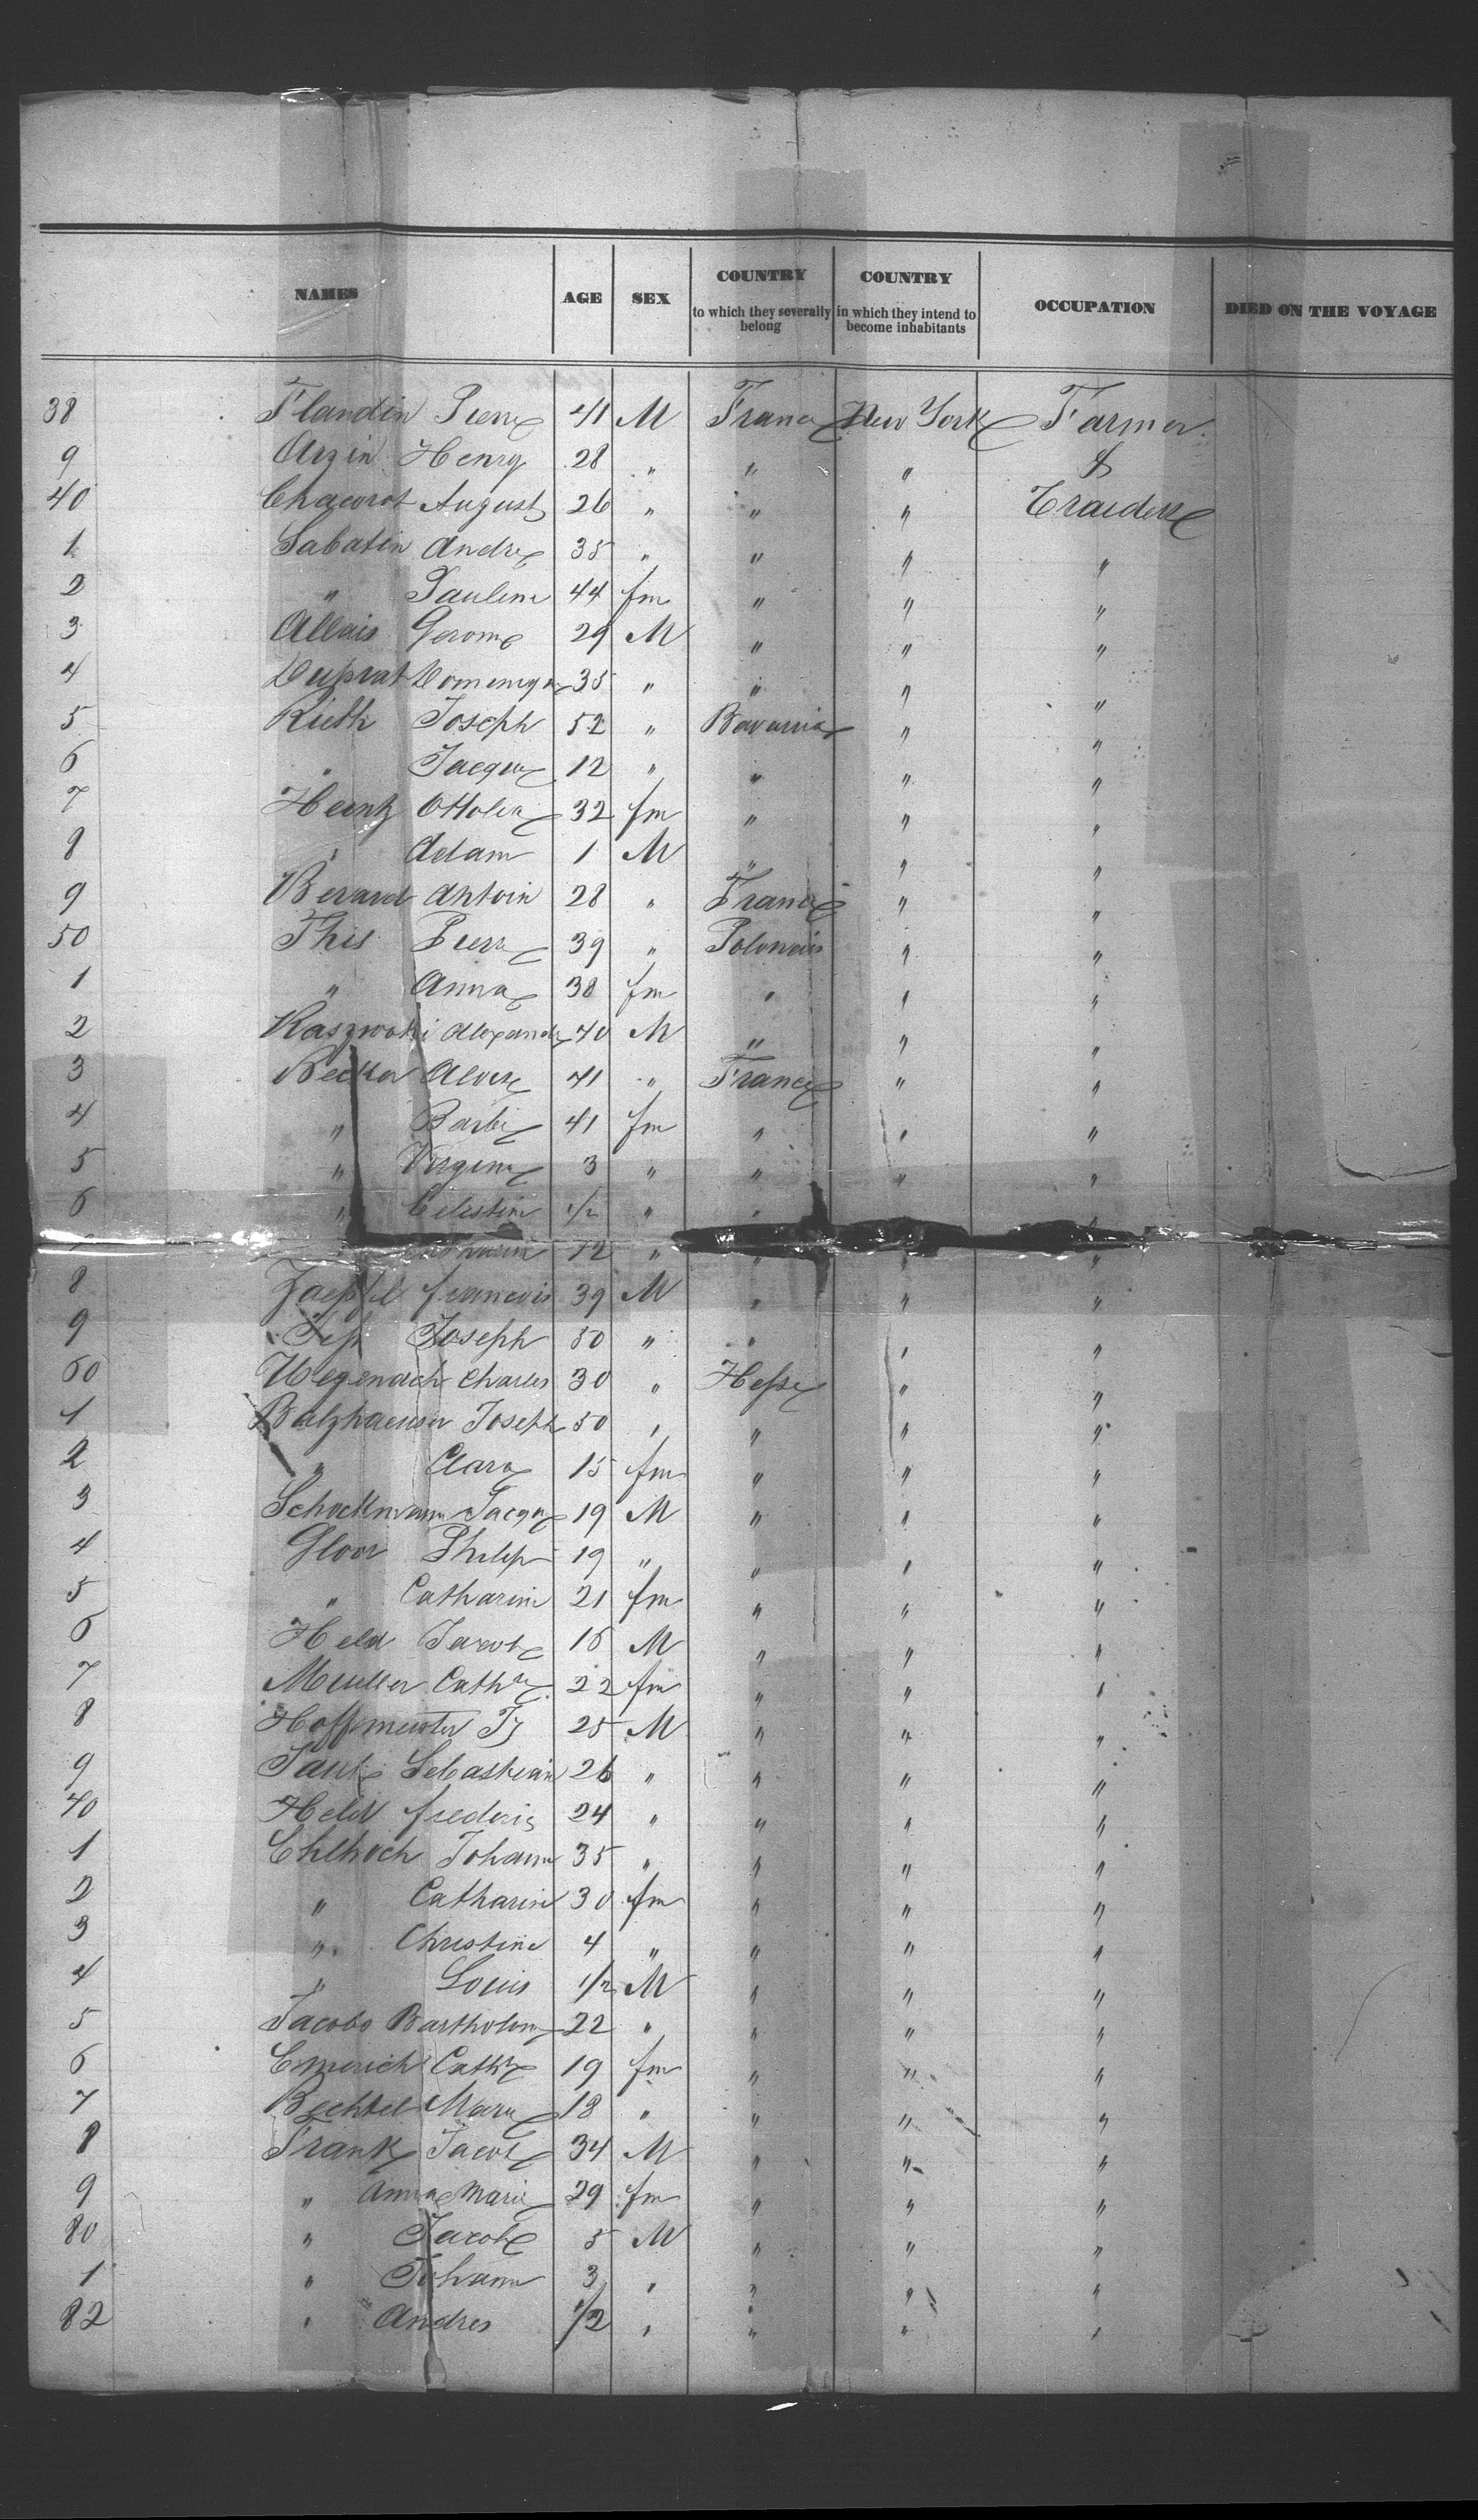 NAMES AGE SEX COUNTRY to which they severally belong COUNTRY in which they intend to become inhabitants OCCUPATION DIED ON THE VOYAGE
38 Flandin Pierre 41 M France New York Farmer
9 Arzin Henry 28 " " " &
40 Chacorot August 26 " " " Traiders
1 Sabatin Andre 35 " " " "
2 " Pauline 44 fm " " "
3 Allais Gerome 29 M " " "
4 Duprat Domenique 35 " " " "
5 Rieth Joseph 52 " Bavaria " "
6 " Jacque 12 " " " "
7 Heintz Ottolia 32 fm " " "
8 " Adam 1 M " " "
9 Berard Antoin 28 " France " "
50 This Pierre 39 " Polonais " "
1 " Anna 38 fm " " "
2 Alexander 40 M " " "
3 Becker 41 " France " "
4 " Barbe 41 fm " " "
5 " Virginie 3 " " " "
6 " Celestin 1/2 " " " "
12 " " " "
8 Zaepfel francois 39 M " " "
9 Joseph 50 " " " "
60 Wegenach Charles 30 " Hesse " "
1 Balzhaeuser Joseph 50 " " " "
2 " Clara 15 fm " " "
3 Schockmann Jacque 19 M " " "
4 Gloor Philip 19 " " " "
5 " Catharine 21 fm " " "
6 Held Jacob 16 M " " "
7 Muller Cathre 22 fm " " "
8 Hoffmeister 25 M " " "
9 Sebastian 26 " " " "
70 Held frederic 24 " " " "
1 Ehlhoch Johann 35 " " " "
2 " Catharine 30 fm " " "
3 " Christine 4 " " " "
4 " Louis 1/2 M " " "
5 Jacobs Bartholomy 22 " " " "
6 Emerich Cathre 19 fm " " "
7 Bechtel Marie 18 " " " "
8 Frank Jacob 34 M " " "
9 " Anna Marie 29 fm " " "
80 " Jacob 5 M " " "
1 " Johann 3 " " " "
82 " Andres 1/2 " " " "